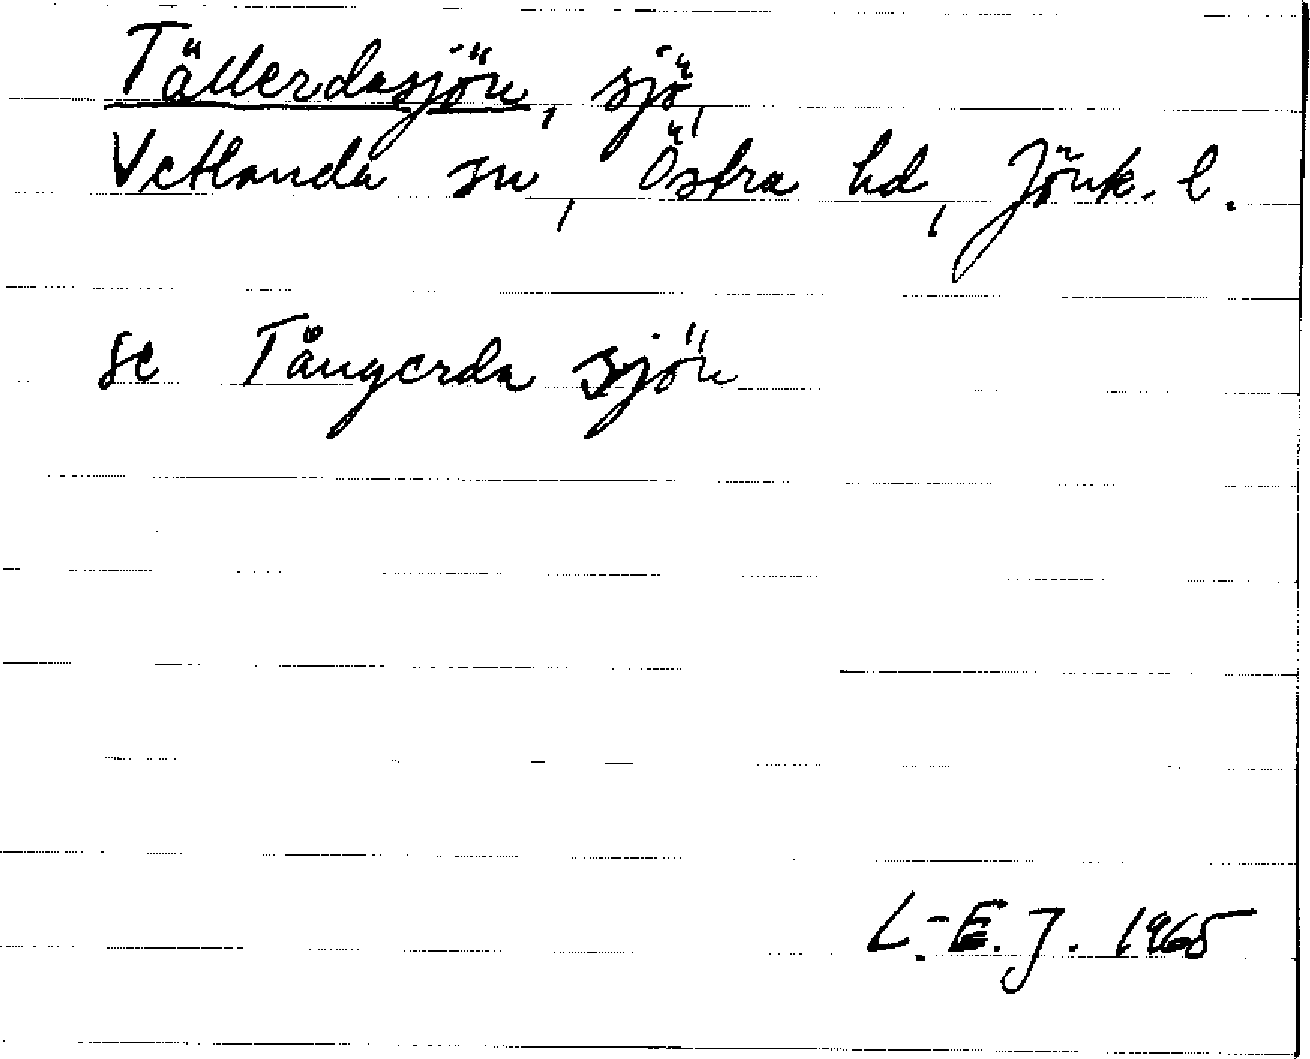 Tällerdasjön, sjö,
Vetlanda sn, Östra hd, Jönk. l.
se Tångerda sjön
L.-E. J. 1965